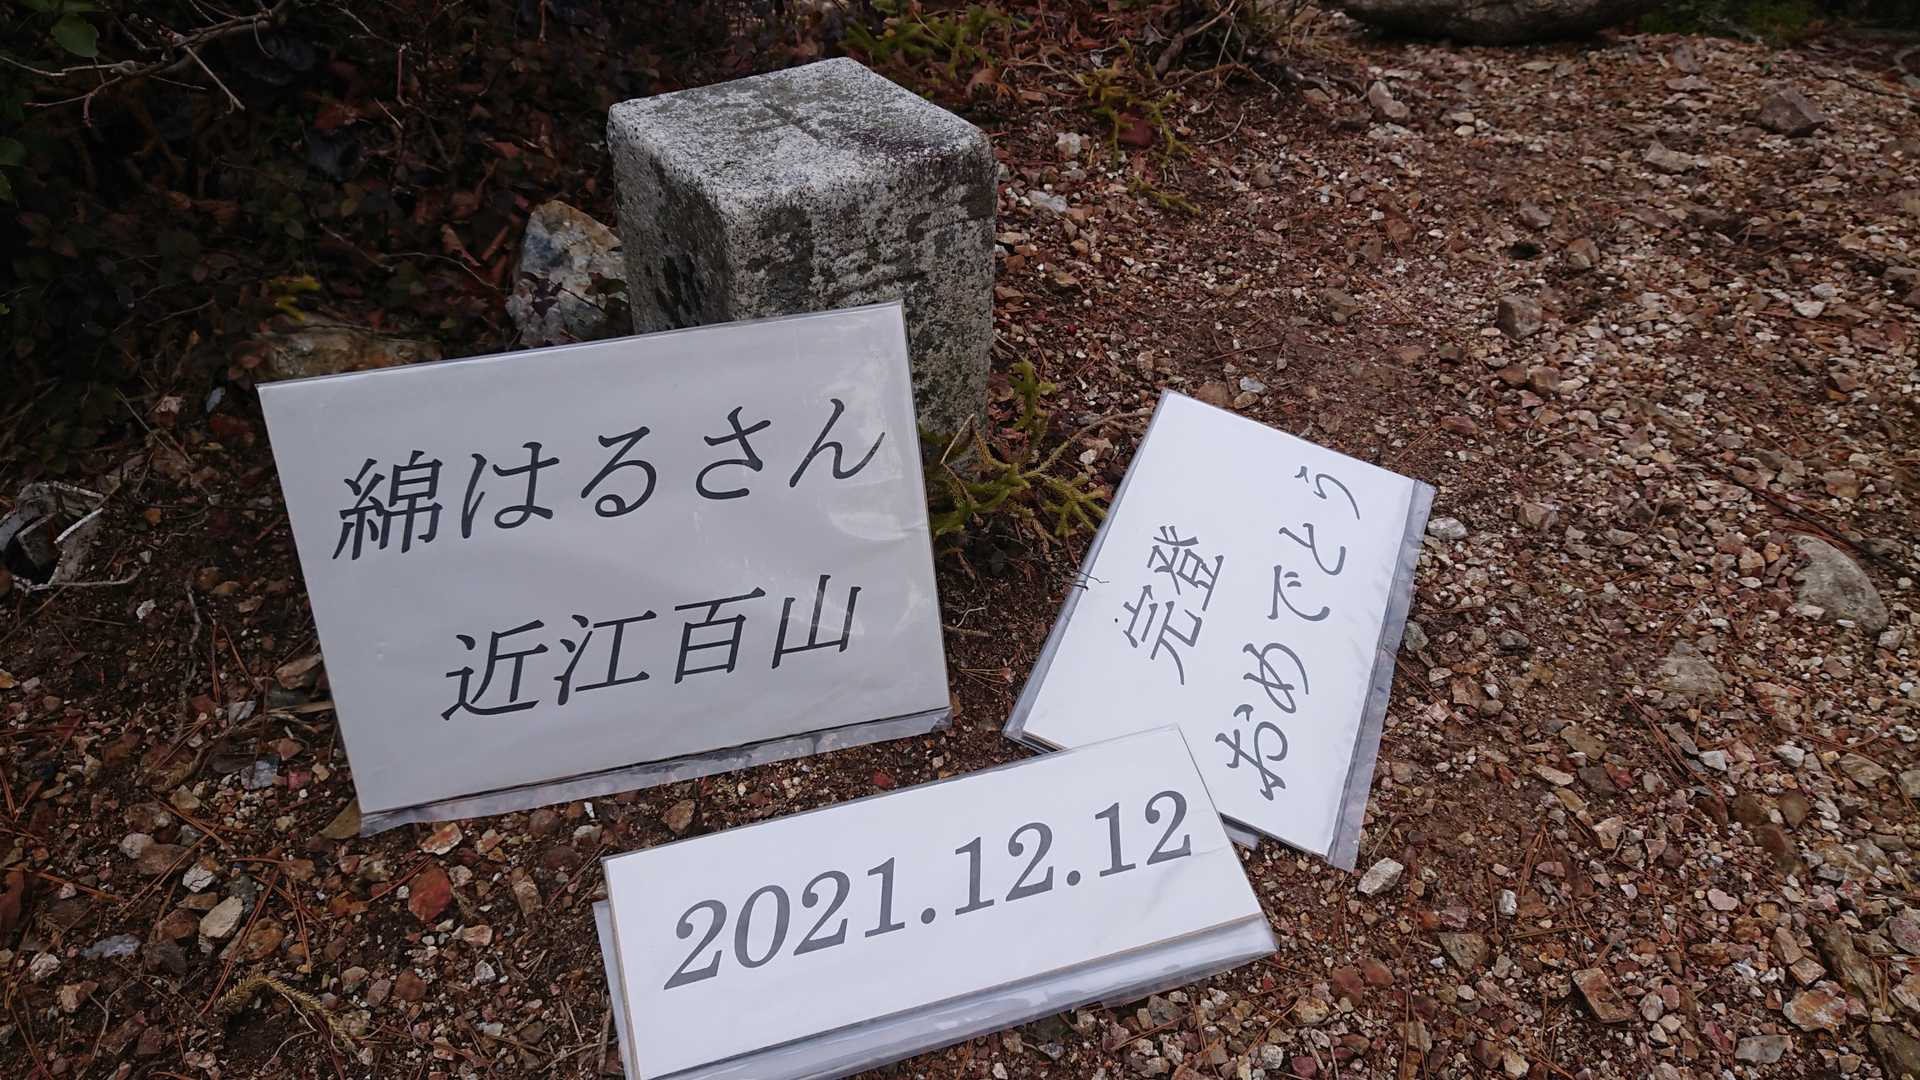 綿はるさん
近江百山
完登
おめでとう
2021.12.12